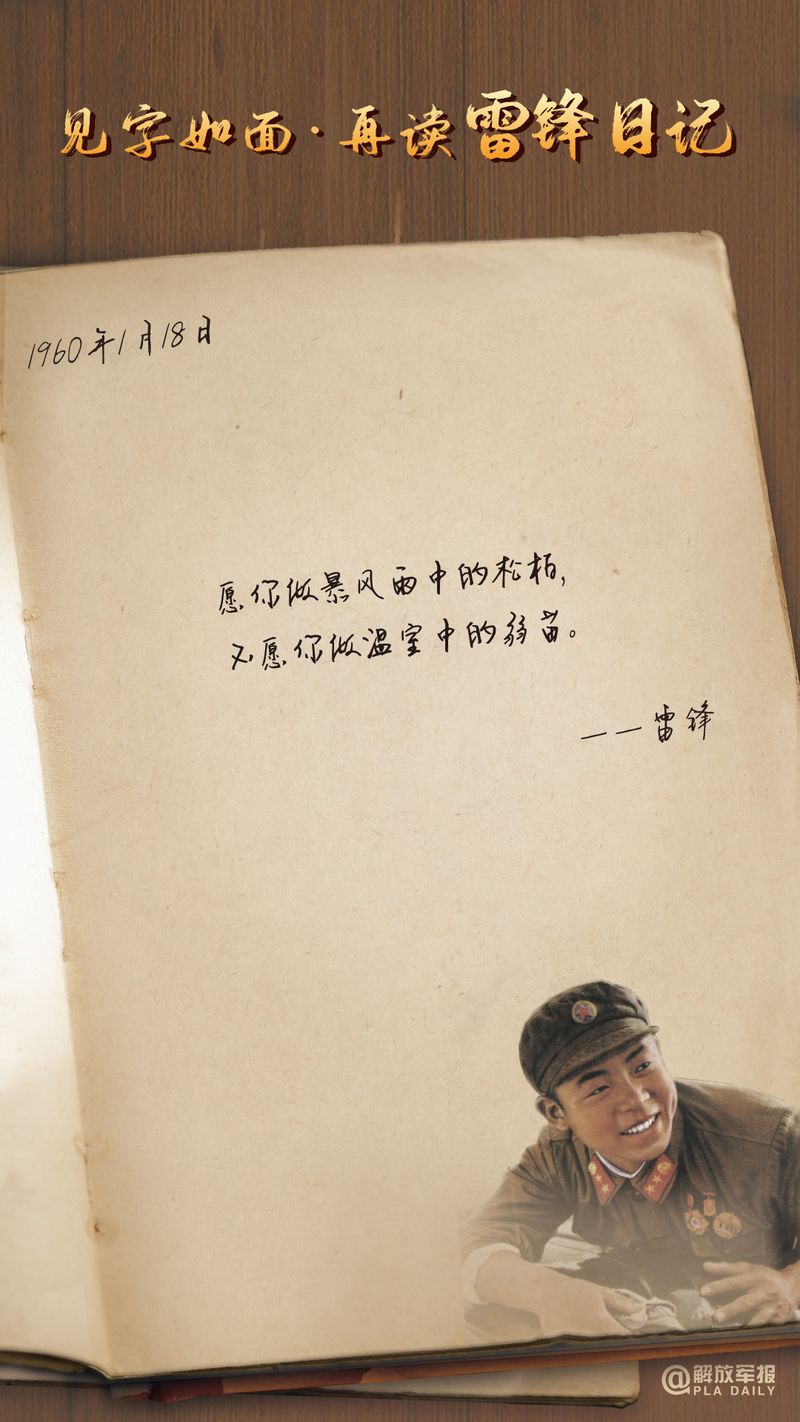 见字如面·再读雷锋日记
1960年1月18日
愿你做暴风雨中的松柏,
不愿你做温室中的弱苗。
——雷锋
@解放军报
PLA DAILY